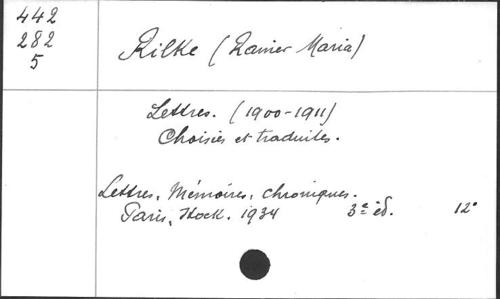 442
282
5
Rilke (Rainer Maria)
Lettres. (1900-1911)
Choisies et traduites.
Lettres, Mémoires, chroniques.
Paris, Stock. 1934 3e éd. 12°